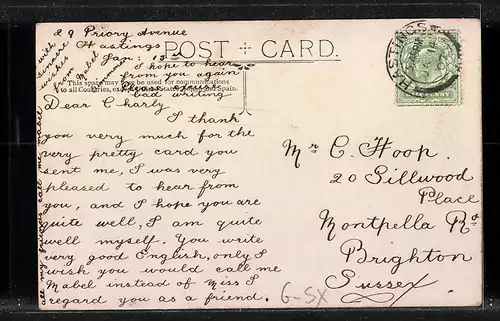 29 Priory Avenue
Hastings
Jan: 13th
POST CARD.
This space may be used for
to all Countries, except United States and Spain.
Dear Charly
I thank
you very much for the
very pretty card you
sent me, I was very
pleased to hear from
you, and I hope you are
quite well, I am quite
well myself. You write
very good English, only I
wish you would call me
Mabel instead of Miss I
regard you as a friend.
all my friends call me Mabel
I hope to hear
from you again
Please excuse
bad writing
with
sincere
wishes
from
Mabel
Mr C. Hoop.
20 Sillwood
Place
Montpella Rd
Brighton
Sussex
G-SX
HASTINGS